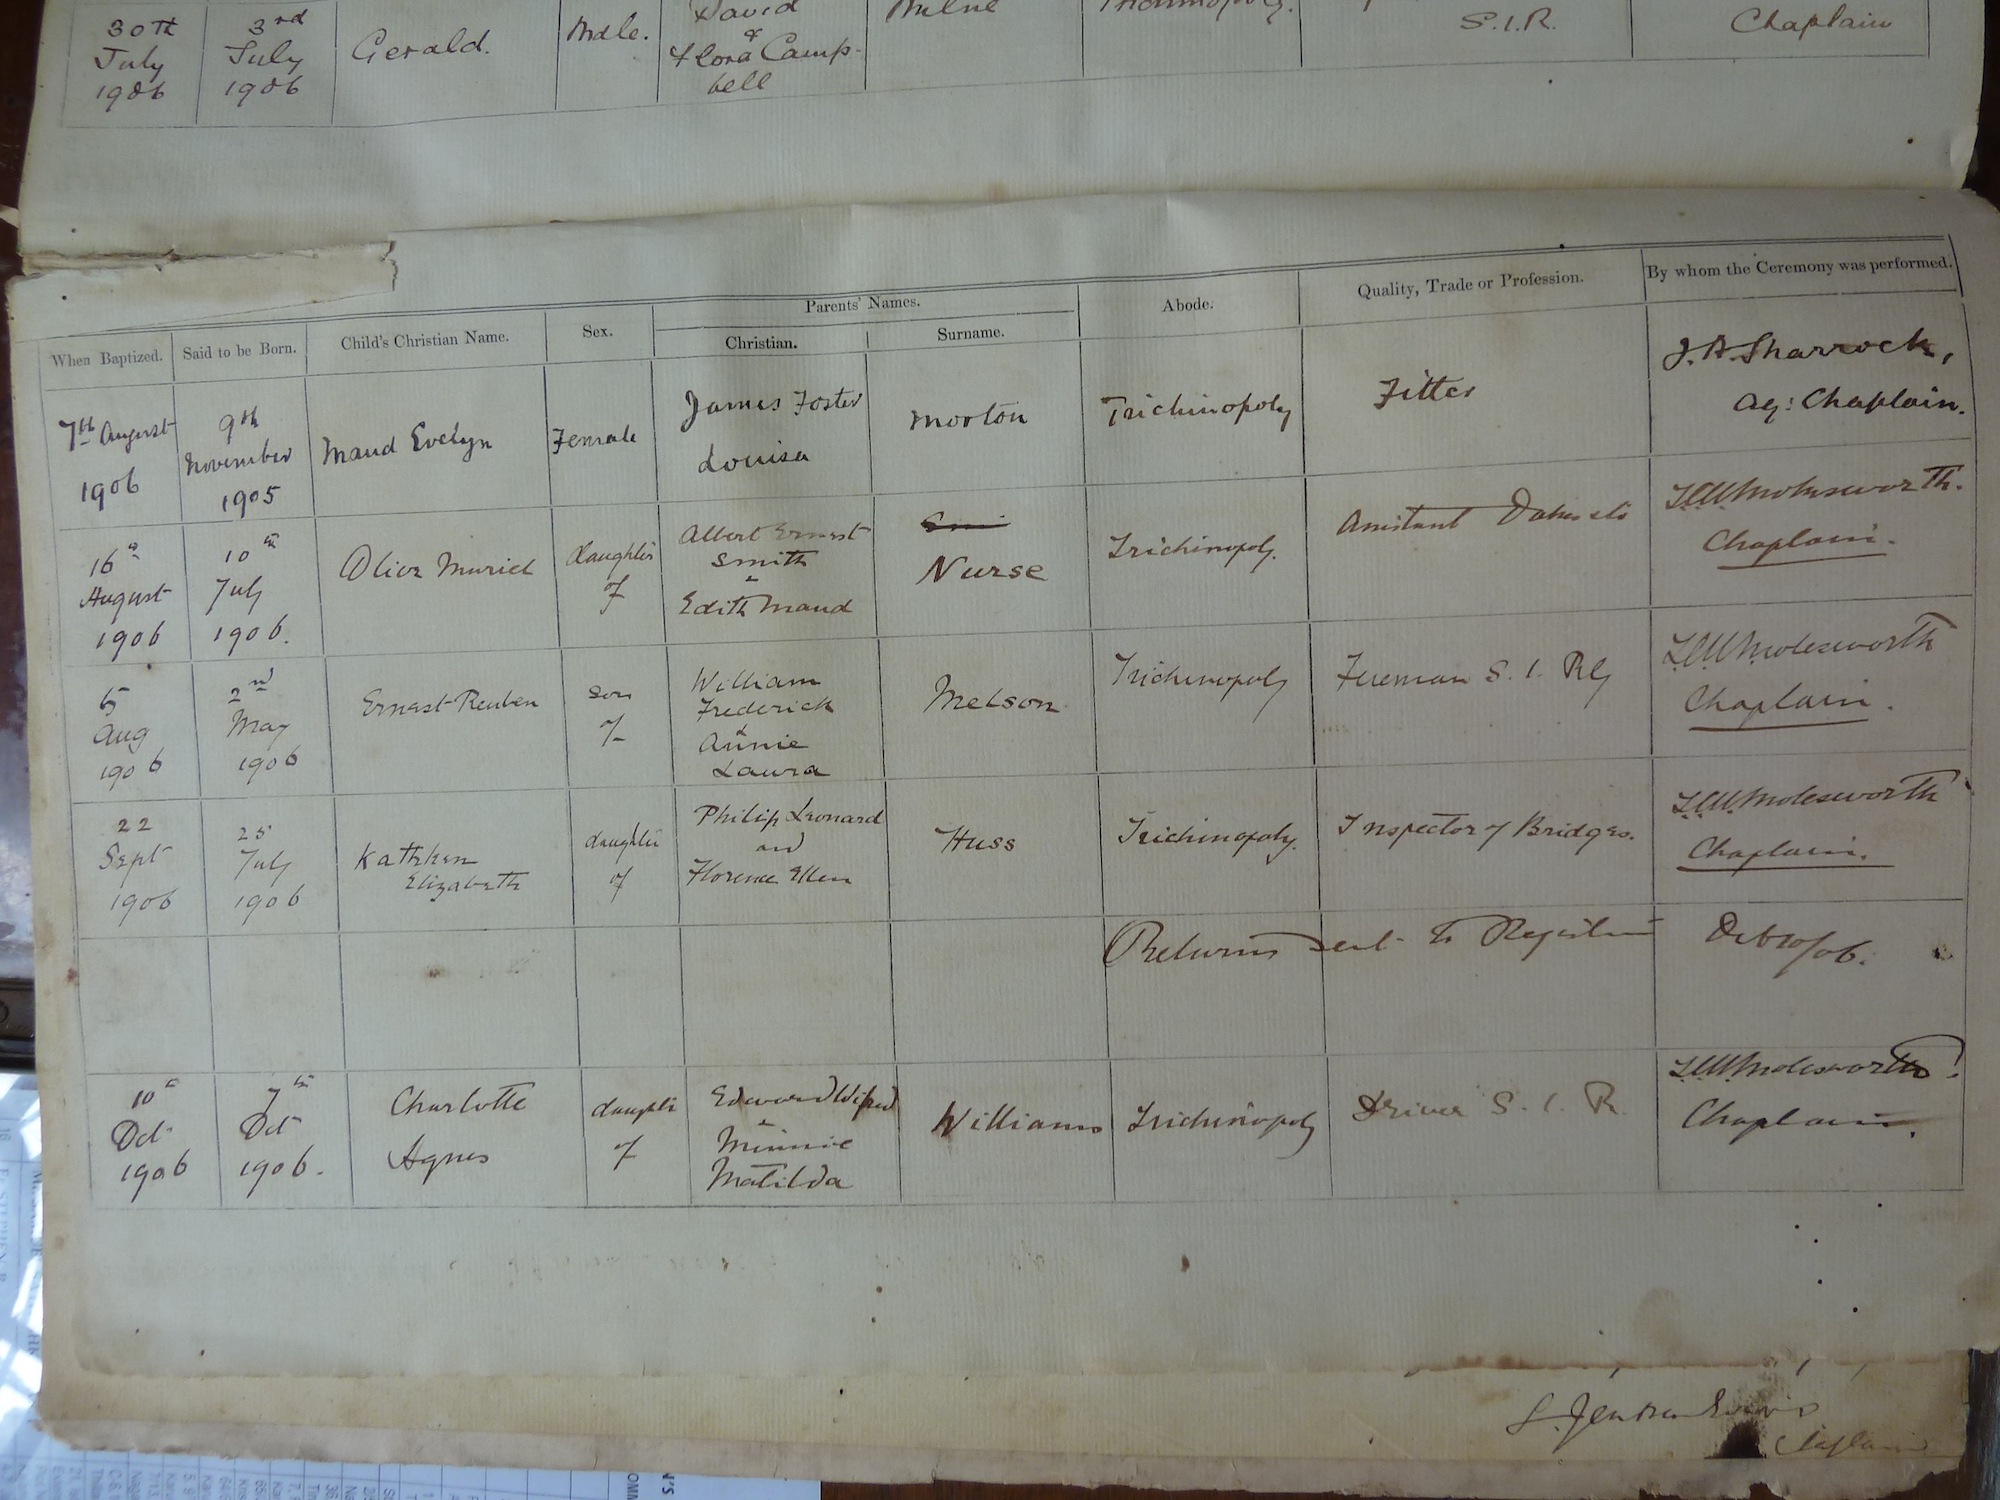 30th July 1906
3rd July 1906
Gerald.
Male.
David & Flora Campbell
Milne
Trichinopoly.
S.I.R.
Chaplain
When Baptized.
Said to be Born.
Child's Christian Name.
Sex.
Parents' Names.
Christian.
Surname.
Abode.
Quality, Trade or Profession.
By whom the Ceremony was performed.
7th August 1906
9th November 1905
Maud Evelyn
Female
James Foster
Louisa
Morton
Trichinopoly
Fitter
J. A. Sharrock,
Ag: Chaplain.
16th August 1906
10th July 1906.
Olive Muriel
daughter of
Albert Ernest Smith
&
Edith Maud
Smi
Nurse
Trichinopoly.
Assistant
Molesworth.
Chaplain.
5 Aug 1906
2nd May 1906
Ernest Reuben
son of
William Frederick
&
Annie Laura
Melson
Trichinopoly
Fireman S. I. Rly
Molesworth
Chaplain.
22 Sept 1906
25 July 1906
Kathleen Elizabeth
daughter of
Philip Leonard
and
Florence Ellen
Huss
Trichinopoly.
Inspector of Bridges.
Molesworth
Chaplain.
Returns sent to Registrar
Oct 10/06.
10th Oct 1906
7th Oct 1906.
Charlotte Agnes
daughter of
Edward Wilfred
&
Minnie Matilda
Williams
Trichinopoly
Driver S. I. R.
Molesworth
Chaplain.
Chaplain